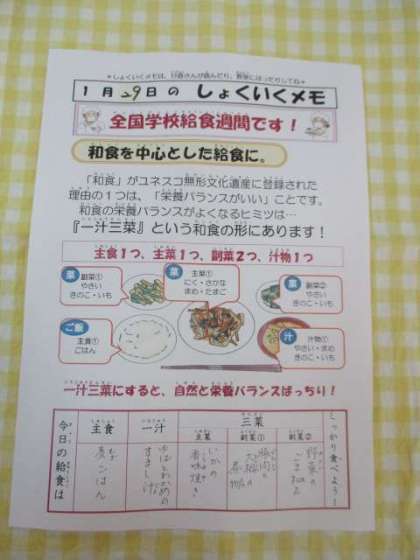 1月29日の しょくいくメモ
全国学校給食週間です！
和食を中心とした給食に。
「和食」がユネスコ無形文化遺産に登録された
理由の1つは、「栄養バランスがいい」ことです。
和食の栄養バランスがよくなるヒミツは…
『一汁三菜』という和食の形にあります！
主食1つ、主菜1つ、副菜2つ、汁物1つ
菜
副菜①
やさい
きのこ・いも
菜
主菜①
にく・さかな
まめ・たまご
菜
副菜②
やさい
きのこ・いも
ご飯
主食①
ごはん
汁
汁物①
やさい・まめ
きのこ・いも
一汁三菜にすると、自然と栄養バランスばっちり！
しっかり食べよう！
三菜
副菜②
野菜の
ごま和え
副菜①
豚肉と
大根の
煮物
主菜
いかの
香味焼き
一汁
わかめの
すまし汁
主食
麦ごはん
今日の給食は